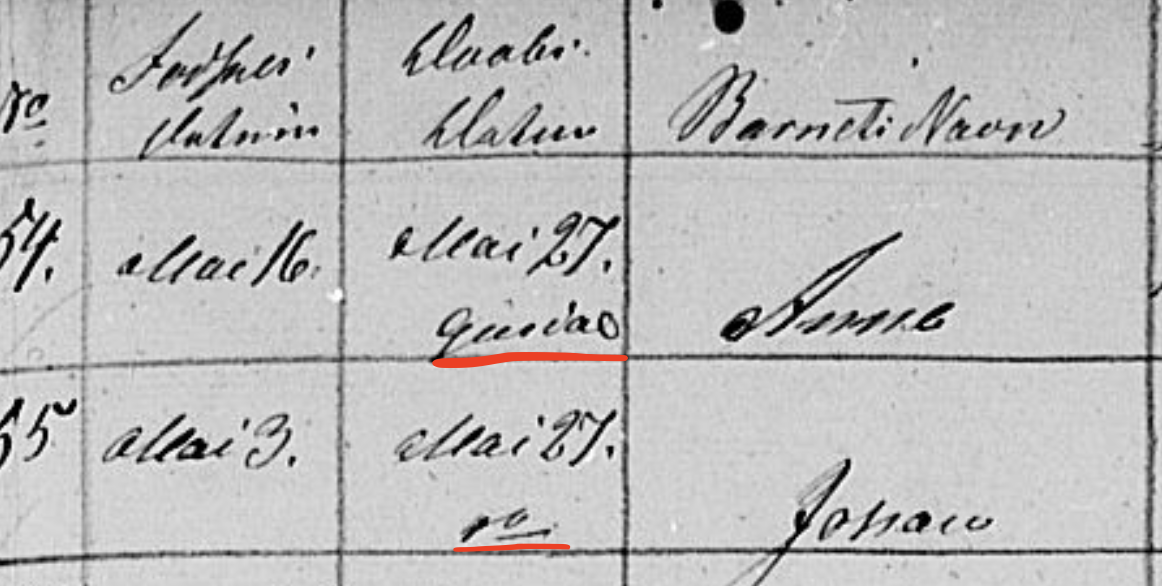 No
Fødsels
datum
Daabs
Datum
Barnets Navn
54.
Mai 16.
Mai 27.
Anne
55
Mai 3.
Mai 27.
Johan